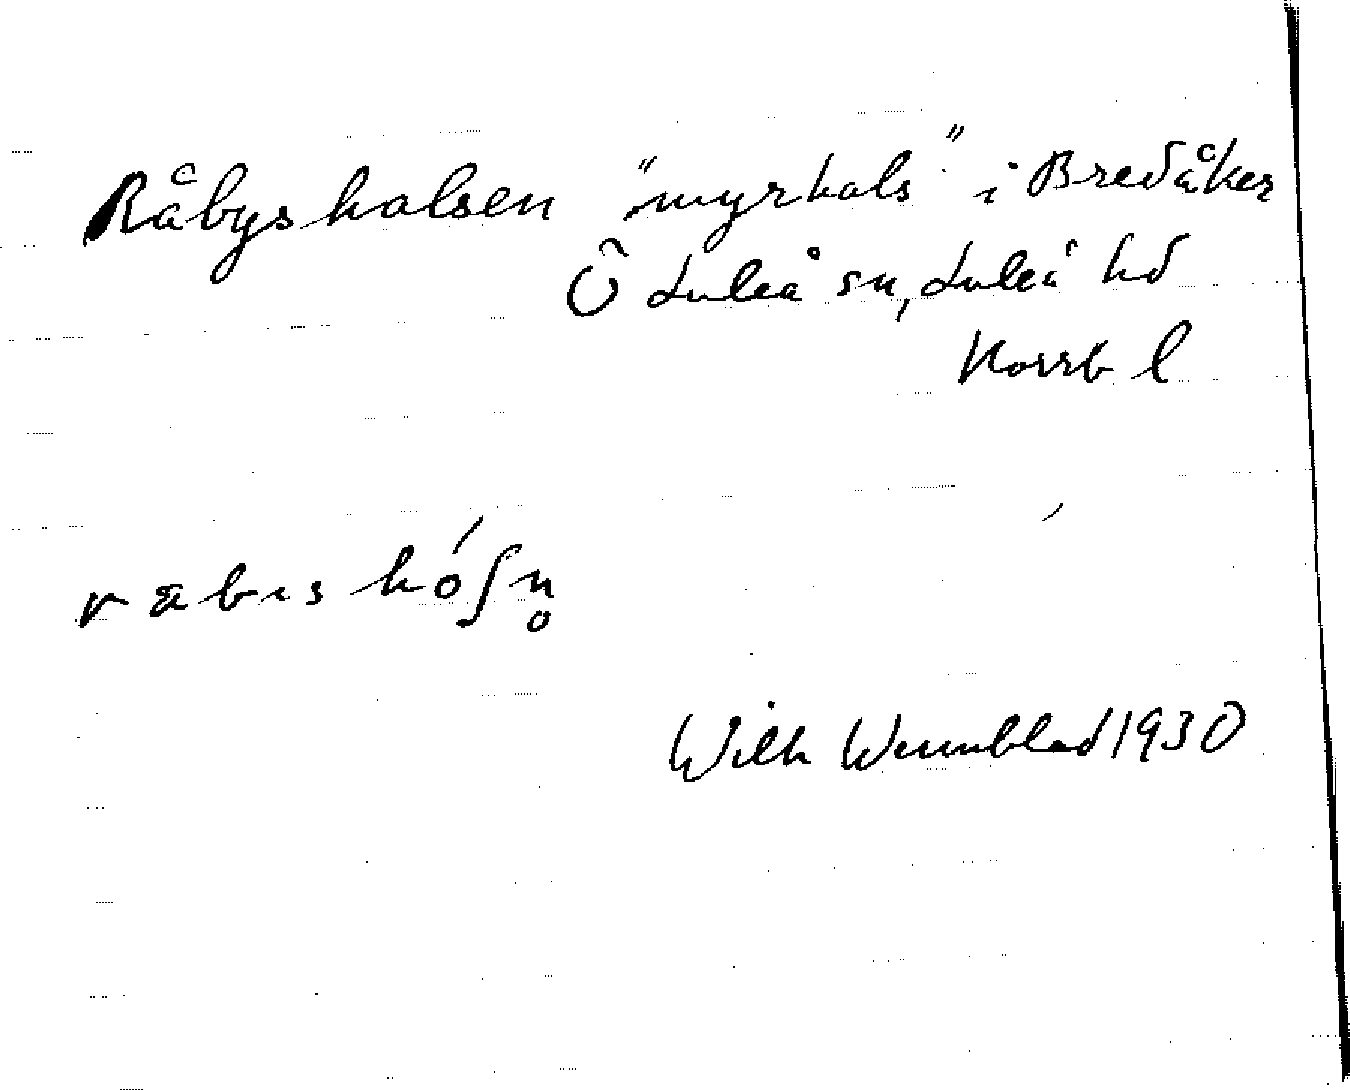 Råbyshalsen "myrhals" i Bredåker
Ö Luleå sn, Luleå hd
Norrb l
ræbıs hó∫n̥
Wilh Wennblad 1930